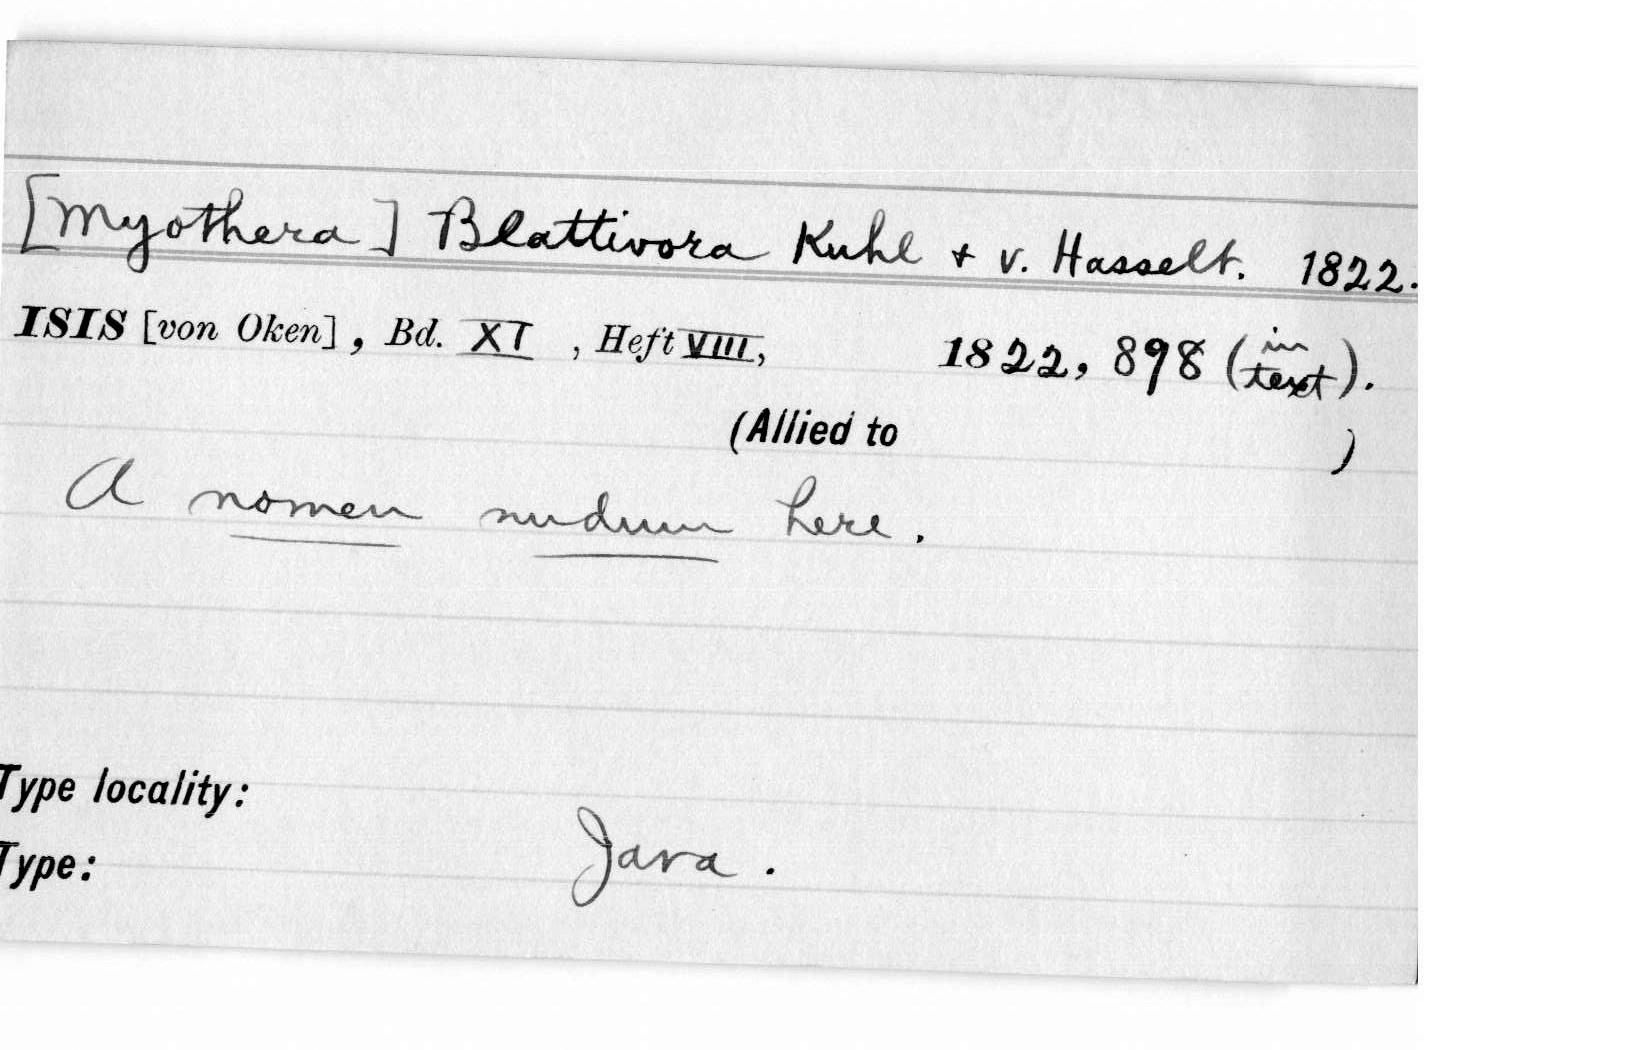 [Myothera] Blattivora Kuhl + v. Hasselt. 1822.
ISIS [von Oken], Bd. XI, Heft VIII, 1822, 898 (in text).
(Allied to )
A nomen nudum here.
Type locality:
Java.
Type: